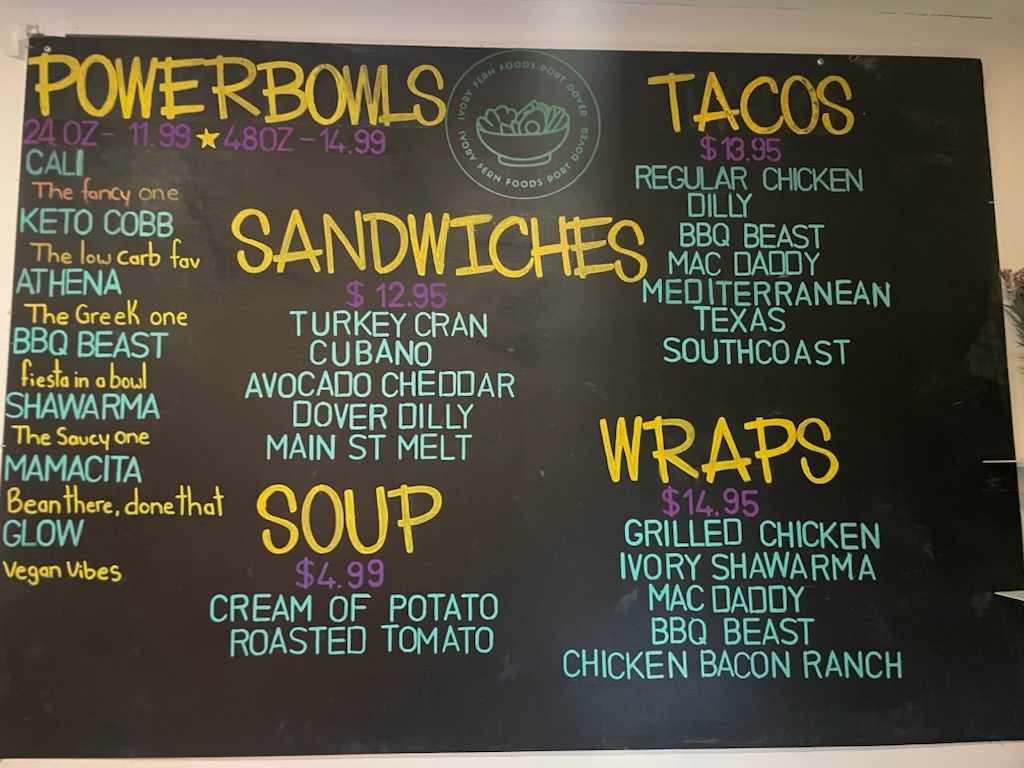 POWERBOWLS
24 OZ - 11.99 ★ 48OZ - 14.99
CALI
The fancy one
KETO COBB
The low carb fav
ATHENA
The Greek one
BBQ BEAST
fiesta in a bowl
SHAWARMA
The Saucy one
MAMACITA
Bean there, done that
GLOW
Vegan Vibes
IVORY FERN FOODS PORT DOVER
IVORY FERN FOODS PORT DOVER
SANDWICHES
$ 12.95
TURKEY CRAN
CUBANO
AVOCADO CHEDDAR
DOVER DILLY
MAIN ST MELT
SOUP
$4.99
CREAM OF POTATO
ROASTED TOMATO
TACOS
$13.95
REGULAR CHICKEN
DILLY
BBQ BEAST
MAC DADDY
MEDITERRANEAN
TEXAS
SOUTHCOAST
WRAPS
$14.95
GRILLED CHICKEN
IVORY SHAWARMA
MAC DADDY
BBQ BEAST
CHICKEN BACON RANCH